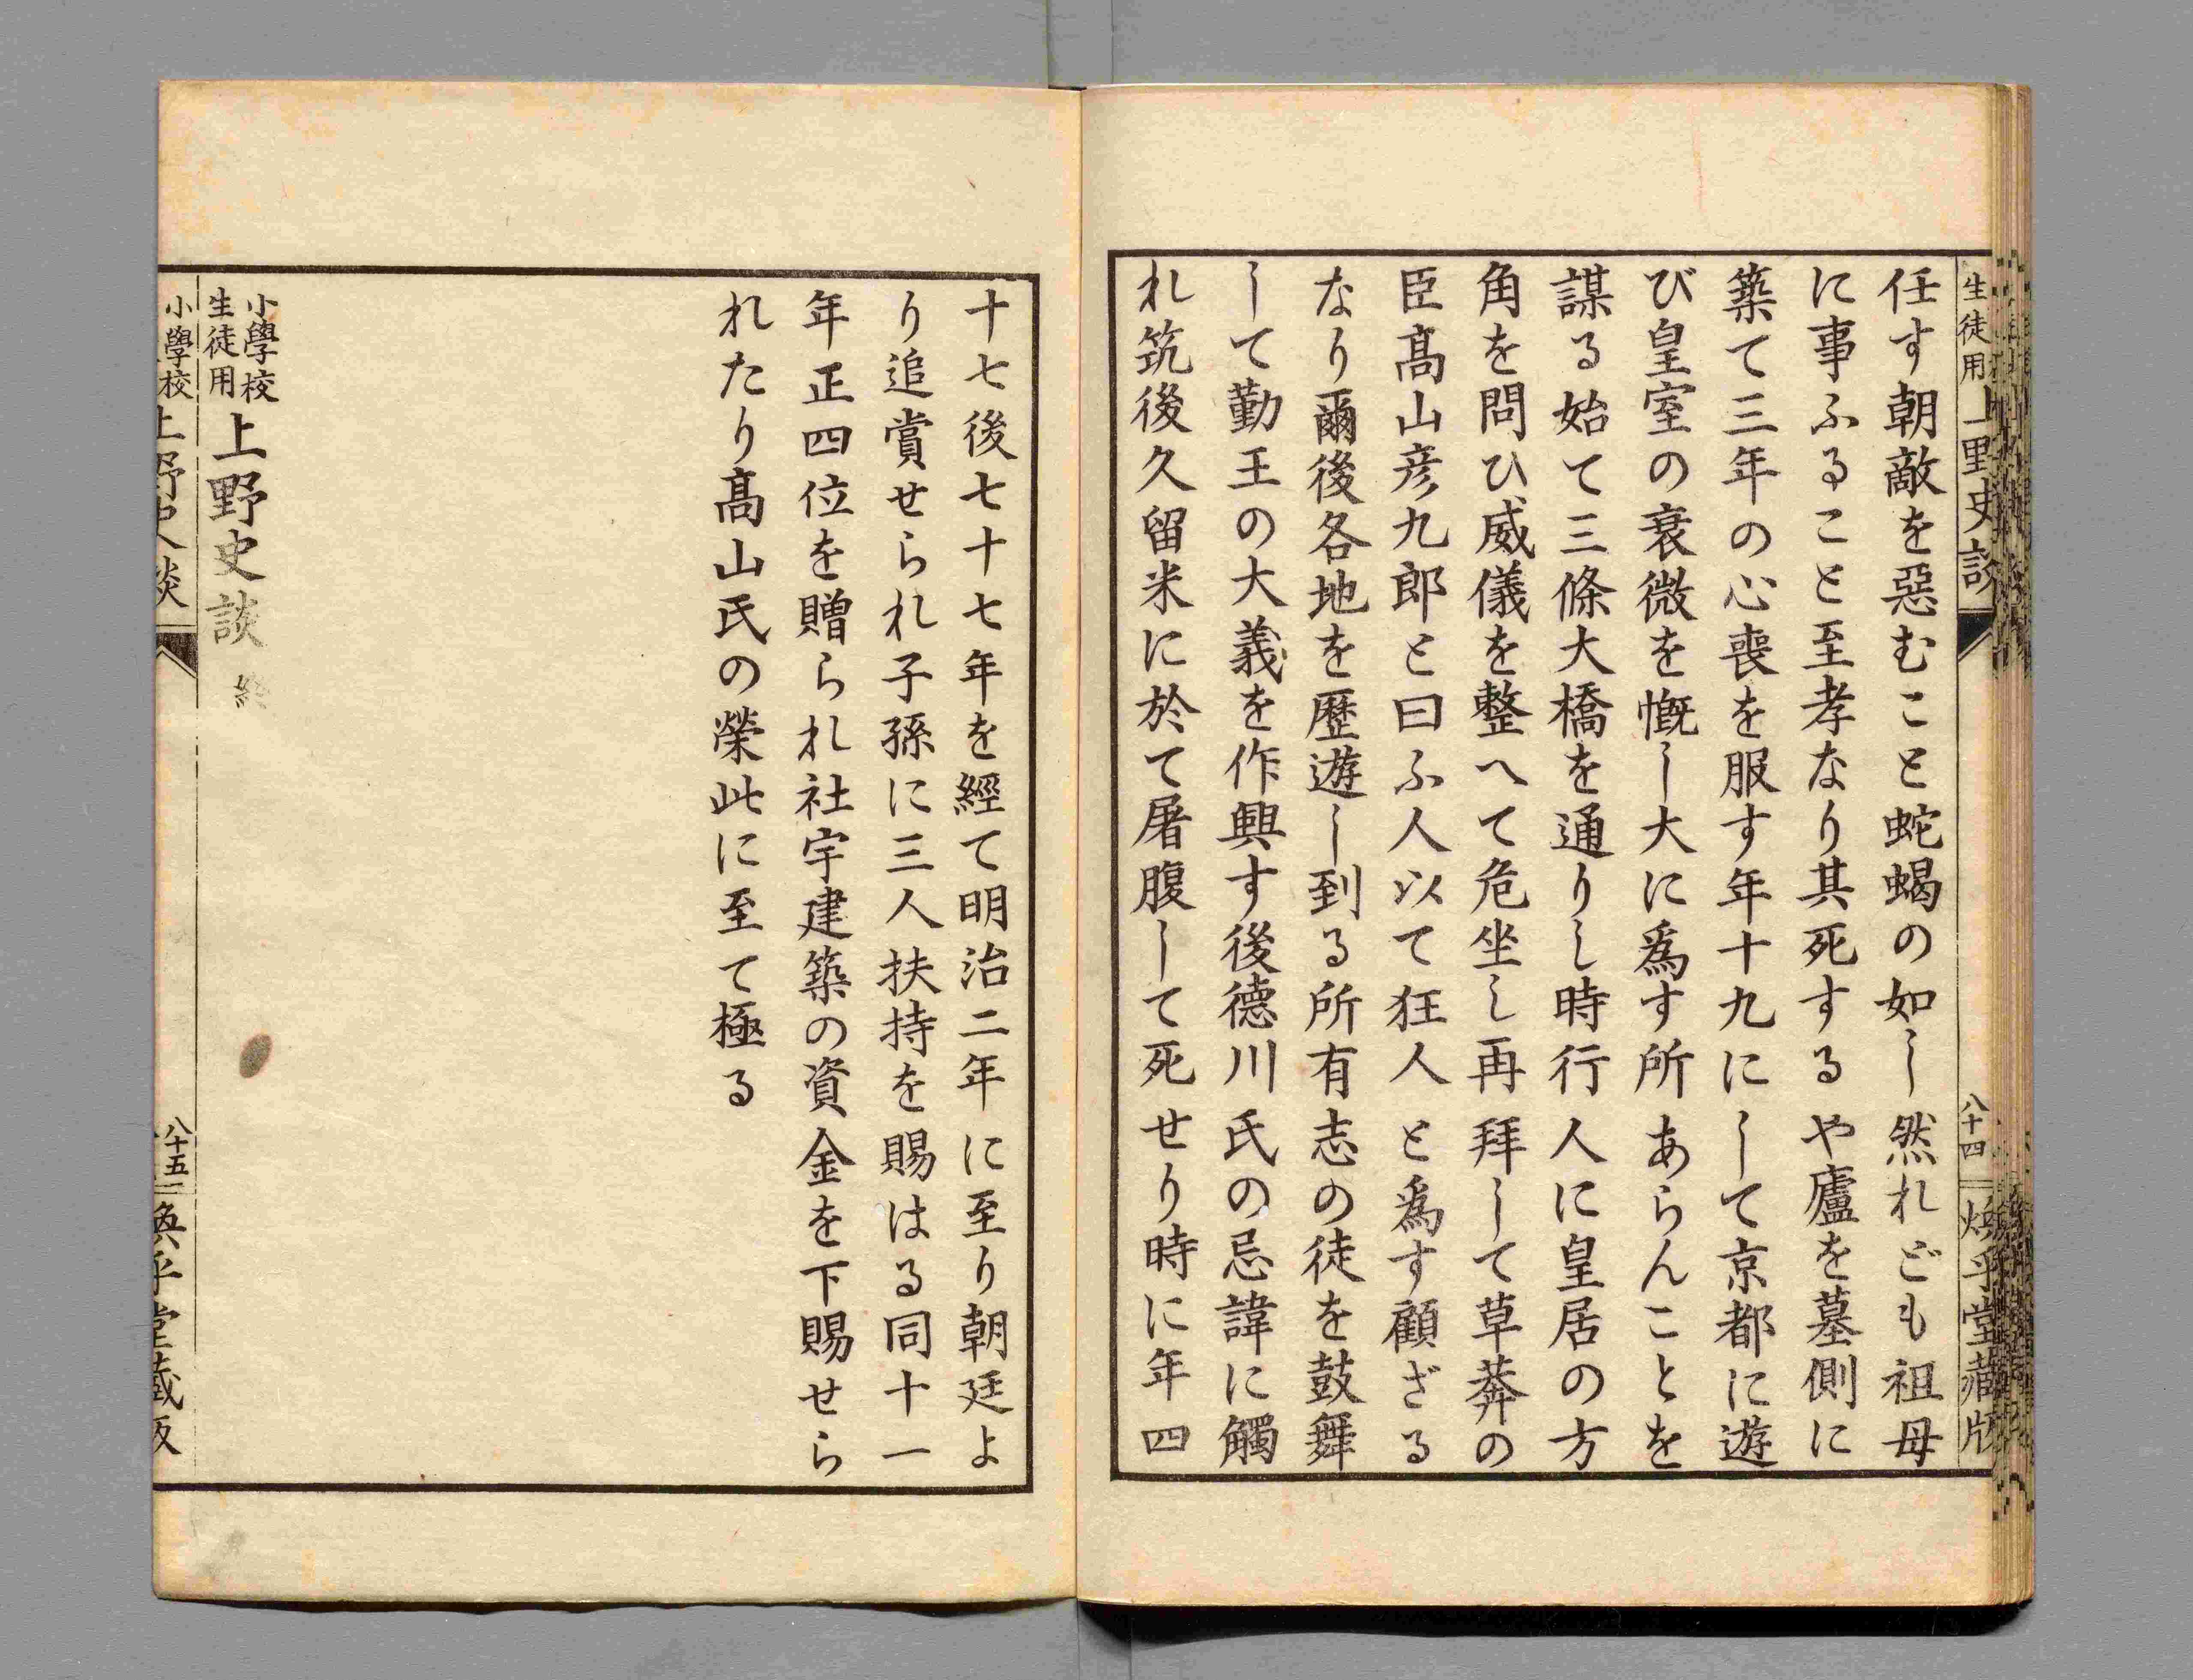 生徒用
上野史談
八十四
煥乎堂藏版
任す朝敵を惡むこと蛇蝎の如し然れども祖母
に事ふること至孝なり其死するや廬を墓側に
築て三年の心喪を服す年十九にして京都に遊
び皇室の衰微を慨し大に爲す所あらんことを
謀る始て三條大橋を通りし時行人に皇居の方
角を問ひ威儀を整へて危坐し再拜して草莽の
臣髙山彦九郎と曰ふ人以て狂人と爲す顧ざる
なり爾後各地を歷遊し到る所有志の徒を鼓舞
して勤王の大義を作興す後德川氏の忌諱に觸
れ筑後久留米に於て屠腹して死せり時に年四
十七後七十七年を經て明治二年に至り朝廷よ
り追賞せられ子孫に三人扶持を賜はる同十一
年正四位を贈られ社宇建築の資金を下賜せら
れたり髙山氏の榮此に至て極る
小學校
生徒用
上野史談 終
小學校
上野史談
八十五
煥乎堂藏版